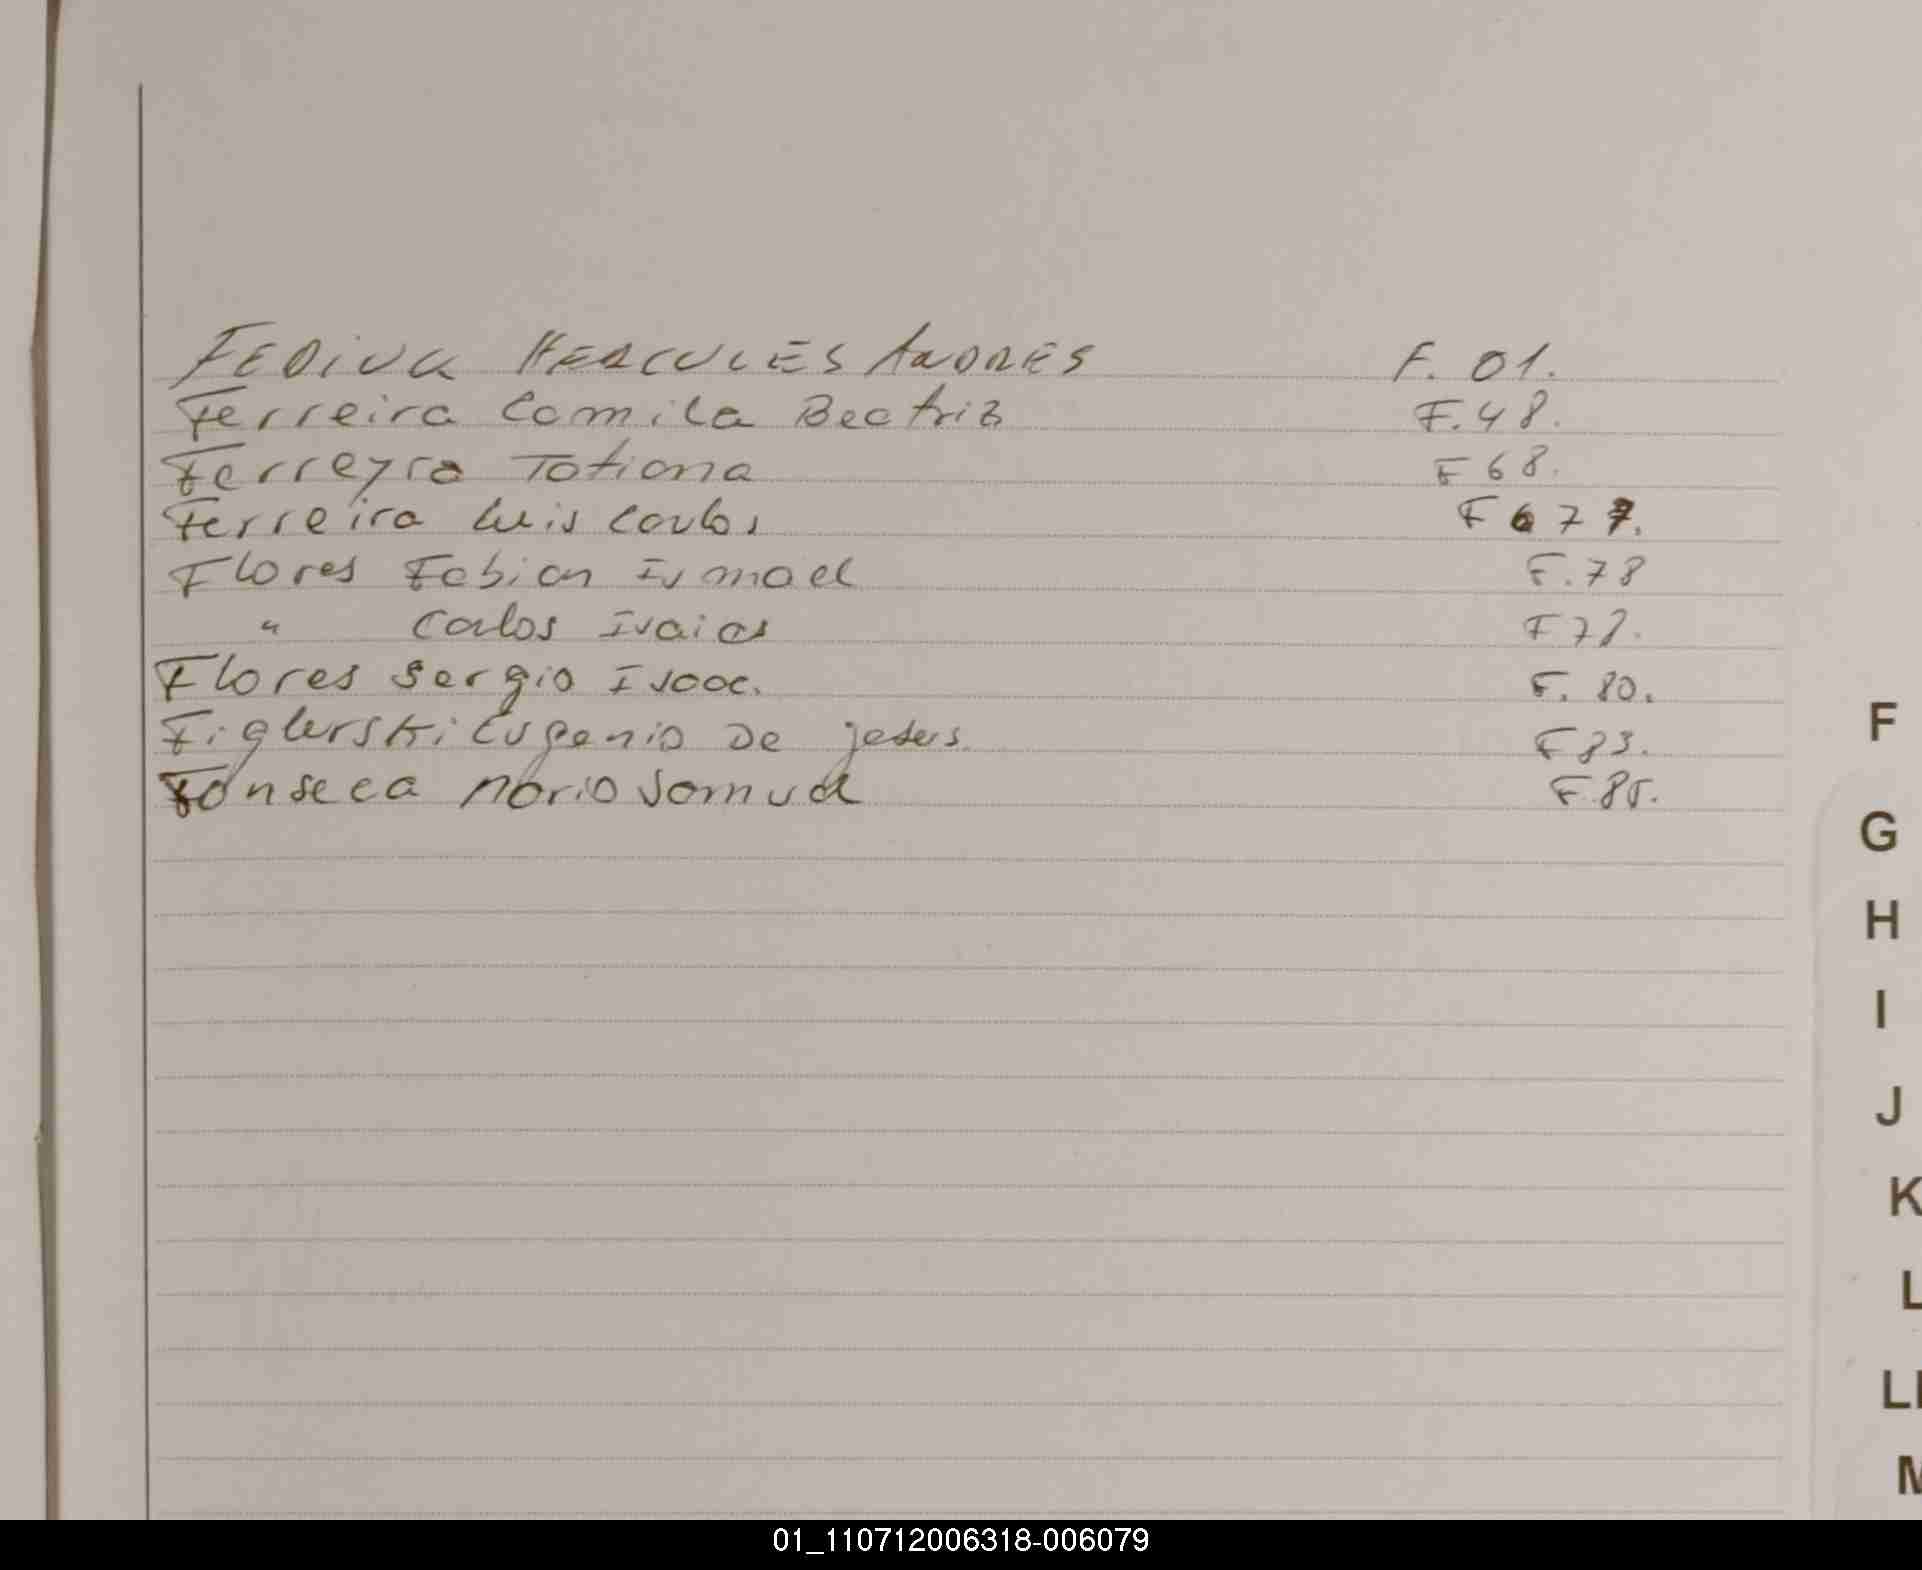 FEDIUK HERCULES ANDRES F. 01.
Ferreira Camila Beatriz F. 48.
Ferreyra Tatiana F 68.
Ferreira Luis Carlos F 677.
Flores Fabian Ismael F. 78
" Carlos Isaias F 78.
Flores Sergio Isaac. F. 80.
Eugenio De jesus. F 83.
Fonseca Mario Samuel F. 85.
F
G
H
I
J
K
L
Ll
M
01_110712006318-006079